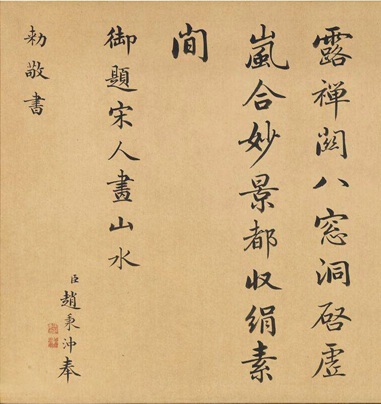 露禪闕八窓洞啓虛
嵐合妙景都收絹素
間
御題宋人畫山水
臣趙秉沖奉
勅敬書